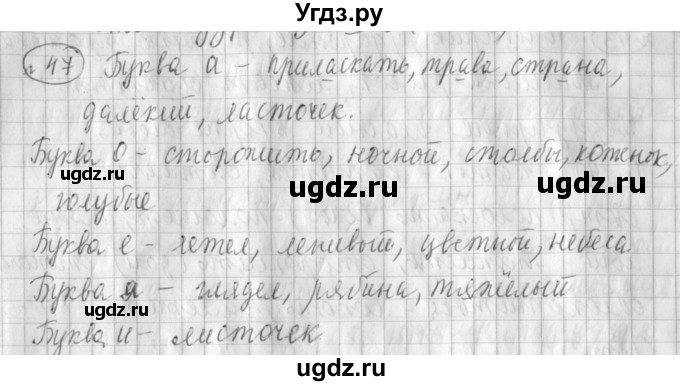 Угдз.ру
47 Буква а – приласкать, трава, страна,
далёкий, ласточек.
Буква о – сторожить, ночной, столбы, котенок,
голубые
Буква е – летел, ленивый, цветной, небеса.
Буква я – глядел, рябина, тяжёлый
Буква и – листочек
ugdz.ru
ugdz.ru
ugdz.ru
ugdz.ru
ugdz.ru
ugdz.ru
ugdz.ru